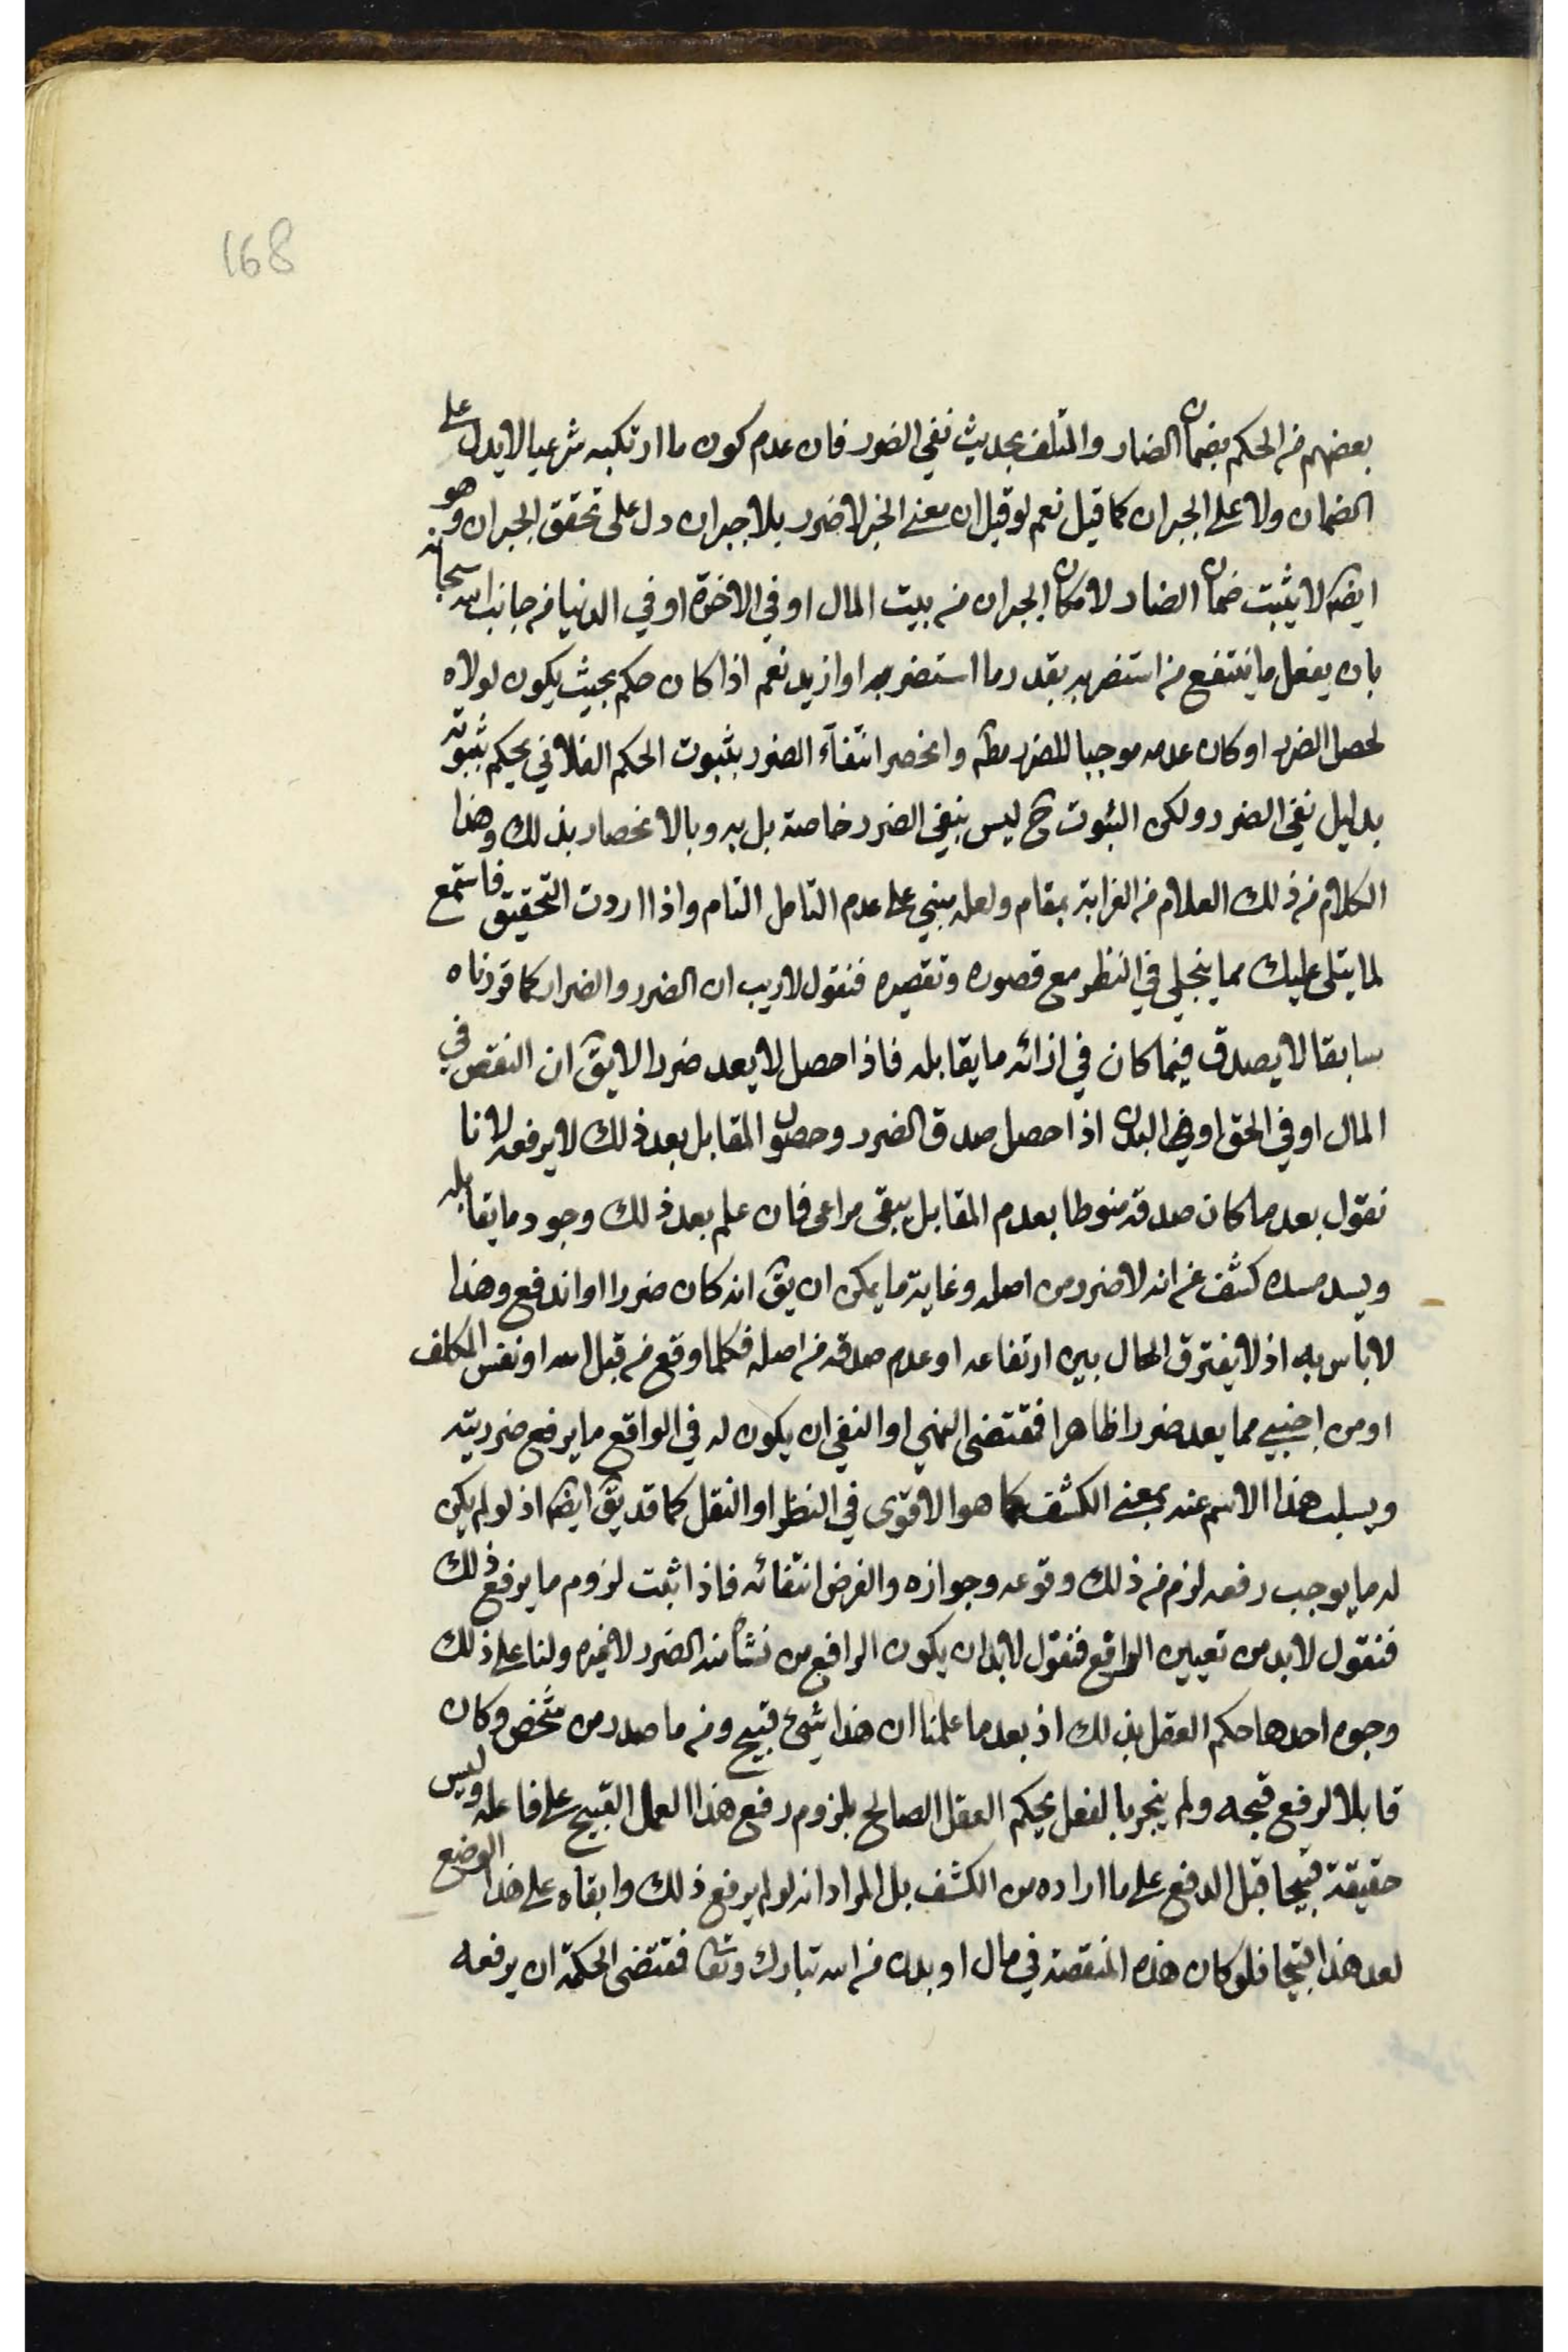 168
بعضهم من الحكم بضمان الضار والمتلف بحديث نفي الضرر فان عدم كون ما ارتكبه شرعيا لا يدل على
الضمان ولا على الجبران كما قيل نعم لو قيل ان معنى الخبر لا ضرر بلا جبران دل على تحقق الجبران وهو
ايضه لا يثبت ضمان الضار لامكان الجبران من بيت المال او في الاخرة او في الدنيا من جانب الله سبحانه
بان يفعل ما ينتفع من استضر به بقدر ما استضر به او ازيد نعم اذا كان حكم بحيث يكون لولاه
لحصل الضرر او كان عدمه موجبا للضرر مطه وانحصر انتفآء الضرر بثبوت الحكم الفلاني يحكم بثبوته
بدليل نفي الضرر ولكن الثبوت ح ليس بنفي الضرر خاصة بل به وبالانحصار بذلك وهذا
الكلام من ذلك العلام من الغرابة بمقام ولعله مبني على عدم التامل التام واذا اردت التحقيق فاستمع
لما يتلى عليك مما ينجلي في النظر مع قصوره وتقصيره فنقول لا ريب ان الضرر والضرار كما قررناه
سابقا لا يصدق فيما كان في ازائه ما يقابله فاذا حصل لا يعد ضررا لا يق ان النقص في
المال او في الحق او في البدن اذا حصل صدق الضرر وحصول المقابل بعد ذلك لا يرفعه لانا
نقول بعد ما كان صدقه منوطا بعدم المقابل يبقى مراعى فان علم بعد ذلك وجود ما يقابله
ويسد مسده كشف عن انه لا ضرر من اصله وغاية ما يمكن ان يق انه كان ضررا او اندفع وهذا
لا باس به اذ لا يفترق الحال بين ارتفاعه او عدم صدقه من اصله فكلما وقع من قبل الله او نفس المكلف
او من اجنبي مما يعد ضررا ظاهرا فمقتضى النهي او النفي ان يكون له في الواقع ما يرفع ضرريته
ويسلب هذا الاسم عنه بمعنى الكشف كما هو الاقوى في النظر او النقل كما قد يق ايضه اذ لو لم يكن
له ما يوجب رفعه لزم من ذلك وقوعه وجوازه والفرض انتفائه فاذا ثبت لزوم ما يرفع ذلك
فنقول لا بد من تعيين الرافع فنقول لا بد ان يكون الرافع من نشأ منه الضرر لا غيره ولنا على ذلك
وجوه احدها حكم العقل بذلك اذ بعد ما علمنا ان هذا شيء قبيح ومن ما صدر من شخص وكان
قابلا لرفع قبحه ولم ينجر بالفعل يحكم العقل الصالح بلزوم رفع هذا العمل القبيح على فاعله وليس
حقيقة قبيحا قبل الدفع على ما اراده من الكشف بل المراد انه لو لم يرفع ذلك وابقاه على هذا الوضع
لعد هذا قبيحا فلو كان هذه المنقصة في مال او بدن من الله تبارك وتعا فمقتضى الحكمة ان يرفعه